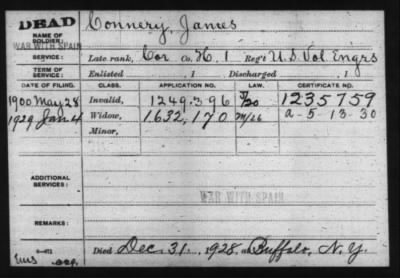 DEAD
NAME OF SOLDIER:
Connery, James
WAR WITH SPAIN
SERVICE:
Late rank, Cor Co. H, 1 Reg't U.S. Vol Engrs
TERM OF SERVICE:
Enlisted , 1 Discharged , 1
DATE OF FILING. CLASS. APPLICATION NO. LAW. CERTIFICATE NO.
1900 May 28 Invalid, 1249.396 1235759
1929 Jan 4 Widow, 1632,170 a-5-13-30
Minor,
ADDITIONAL SERVICES:
WAR WITH SPAIN
REMARKS:
Died Dec. 31, 1928, at Buffalo, N.Y.